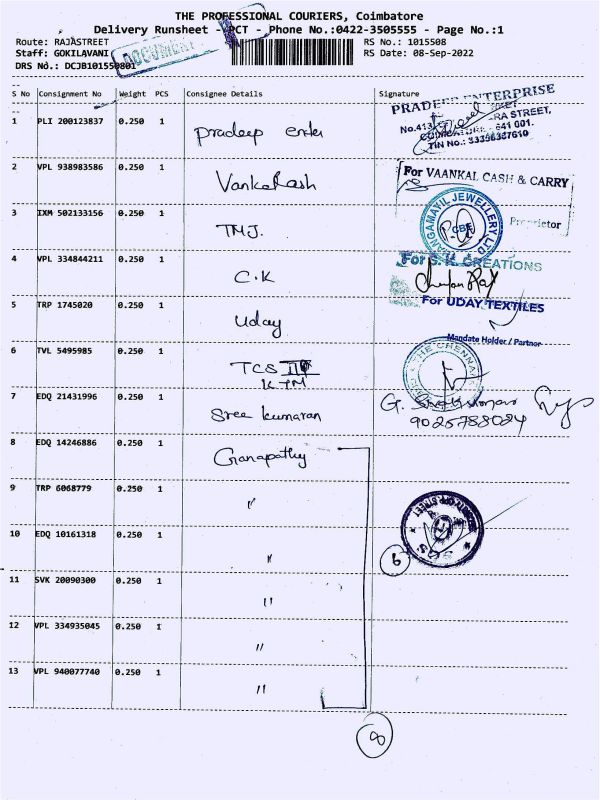 THE PROFESSIONAL COURIERS, Coimbatore
Delivery Runsheet - PCT - Phone No.:0422-3505555 - Page No.:1
Route: RAJASTREET RS No.: 1015508
Staff: GOKILAVANI RS Date: 08-Sep-2022
DRS No.: DCJB101550801
DOCUMENT
S No Consignment No Weight PCS Consignee Details Signature
1 PLI 200123837 0.250 1 pradeep enter
PRADEEP ENTERPRISE
STREET,
TIN No.: 33396387610
2 VPL 938983586 0.250 1 Vankalash
For VAANKAL CASH & CARRY
Proprietor
3 IXM 502133156 0.250 1 TMJ.
JEWELLERY LTD
CBE
4 VPL 334844211 0.250 1 C.K
For S. K. CREATIONS
5 TRP 1745020 0.250 1 Uday
For UDAY TEXTILES
Mandate Holder / Partner
6 TVL 5495985 0.250 1 TCS
KTM
THE CHENNAI
7 EDQ 21431996 0.250 1 Sree kumaran
G. Sivakumar
9025788084
8 EDQ 14246886 0.250 1 Ganapathy
9 TRP 6068779 0.250 1 "
10 EDQ 10161318 0.250 1 "
6
11 SVK 20090300 0.250 1 "
12 VPL 334935045 0.250 1 "
13 VPL 940077740 0.250 1 "
8